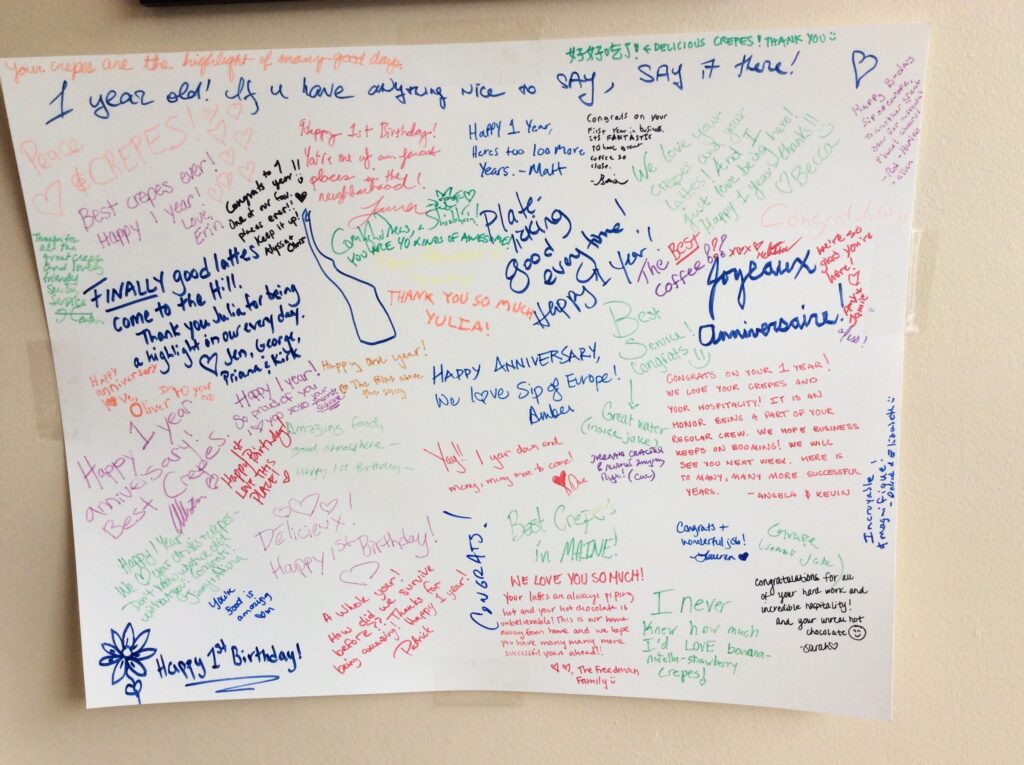 Your crepes are the highlight of many good days
好好吃了! ← DELICIOUS CREPES! THANK YOU
1 year old! If u have anything nice to SAY, SAY it there!
Peace
& CREPES!
Best crepes ever!
Happy 1 year!
Love,
Erin
Congrats to 1
year!!
One of our fav
places ever!!
Keep it up!
Happy 1st Birthday!
You're one of our favorite
places in the
neighborhood!
Lauren
HAPPY 1 YEAR,
Heres too 100 more
Years. - Matt
Congrats on your
First Year in business.
Its FANTASTIC
to have great
coffee so
close.
We love your
crepes and your
lattes! And I
just love being here!
Happy 1 year & thanks!!
Becca
Happy Birthday
Sip of Europe.
YOU ARE 40 KINDS OF AWESOME
Plate-
licking
good
everytime!
Happy 1 Year!
The BEST
coffee
xoxo
Congratulations
we're so
glad you're
here!
Joyeaux
anniversaire!
Thanks for
all the
great crepes
and lovely
friendly
service
FINALLY good lattes
come to the Hill.
Thank you Julia for being
a highlight in our every day.
Jen, George,
Priana & Kirk
THANK YOU SO MUCH
YULIA!
Best
Service!
Congrats!!
Great water
(inside joke)
HAPPY ANNIVERSARY,
We love Sip of Europe!
Amber
Happy
anniversary
Love,
Oliver
Happy one year!
Happy 1 year!
So proud of you
CONGRATS ON YOUR 1 YEAR!
WE LOVE YOUR CREPES AND
YOUR HOSPITALITY! IT IS AN
HONOR BEING A PART OF YOUR
REGULAR CREW. WE HOPE BUSINESS
KEEPS ON BOOMING! WE WILL
SEE YOU NEXT WEEK. HERE IS
TO MANY, MANY MORE SUCCESSFUL
YEARS. - ANGELA & KEVIN
Happy 1 year
anniversary!
Best Crepes.
Happy 1st
Birthday!
LOVE THIS
PLACE!
Amazing food,
good atmosphere -
Happy 1st Birthday -
Yay!! 1 year down and
many, many more to come!
Incroyable
& magnifique!
- David & Elizabeth
Delicieux!
Happy 1st Birthday!
CONGRATS!
Best Crepes
in MAINE!
Congrats +
wonderful job!
- Lauren
Happy 1 Year
your
food is
amazing
A whole year!
How did we survive
before?? Thanks for
being amazing. happy 1 year!
Patrick
WE LOVE YOU SO MUCH!
Your lattes are always piping
hot and your hot chocolate is
unbelievable! This is our home
away from home and we hope
you have many many more
successful years ahead!!
The Freedman
Family
I never
knew how much
I'd LOVE banana-
nutella-strawberry
crepes!
congratulations for all
of your hard work and
incredible hospitality!
and your unreal hot
chocolate
- Sarah
Happy 1st Birthday!